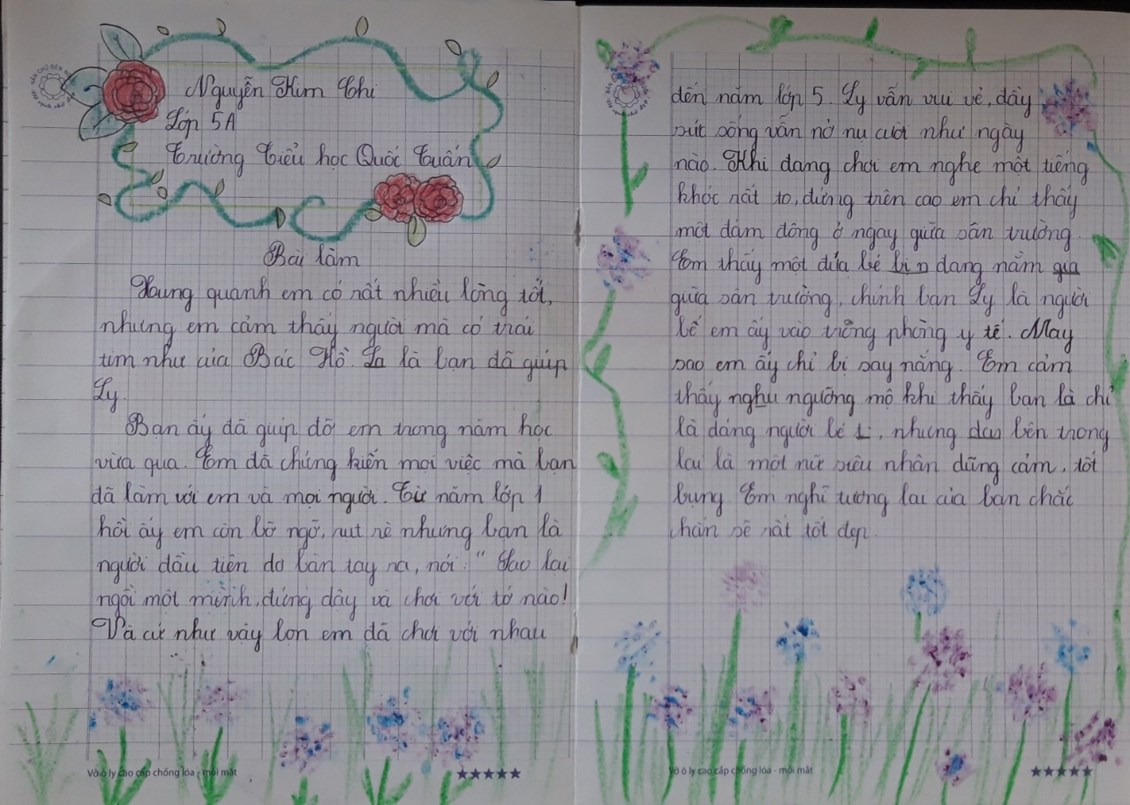 Nguyễn Kim Chi
Lớp 5A
Trường Tiểu học Quốc Tuấn
Bài làm
Xung quanh em có rất nhiều lòng tốt,
nhưng em cảm thấy người mà có trái
tim như của Bác Hồ. La là bạn đã giúp
Ly.
Bạn ấy đã giúp đỡ em trong năm học
vừa qua. Em đã chứng kiến mọi việc mà bạn
đã làm với em và mọi người. Từ năm lớp 1
hồi ấy em còn bỡ ngỡ, rụt rè nhưng bạn là
người đầu tiên đa bàn tay ra, nói: " Sao lại
ngồi một mình, đứng dậy và chơi với tớ nào!
Và cứ như vậy lọn em đã chơi với nhau
đến năm lớp 5. Ly vẫn vui vẻ, đầy
sức sống vẫn nở nụ cười như ngày
nào. Khi đang chơi em nghe một tiếng
khóc rất to, đứng trên cao em chỉ thấy
một đám đông ở ngay giữa sân trường.
Em thấy một đứa bé đang nằm
giữa sân trường, chính bạn Ly là người
bế em ấy vào trong phòng y tế. May
sao em ấy chỉ bị say nắng. Em cảm
thấy ngưỡng mộ khi thấy bạn là chỉ
là dáng người bé, nhưng bên trong
lại là một nữ siêu nhân dũng cảm, tốt
bụng. Em nghĩ tương lai của bạn chắc
chắn sẽ rất tốt đẹp.
Vở ô ly cao cấp chống lóa - mỏi mắt
★★★★★
Vở ô ly cao cấp chống lóa - mỏi mắt
★★★★★